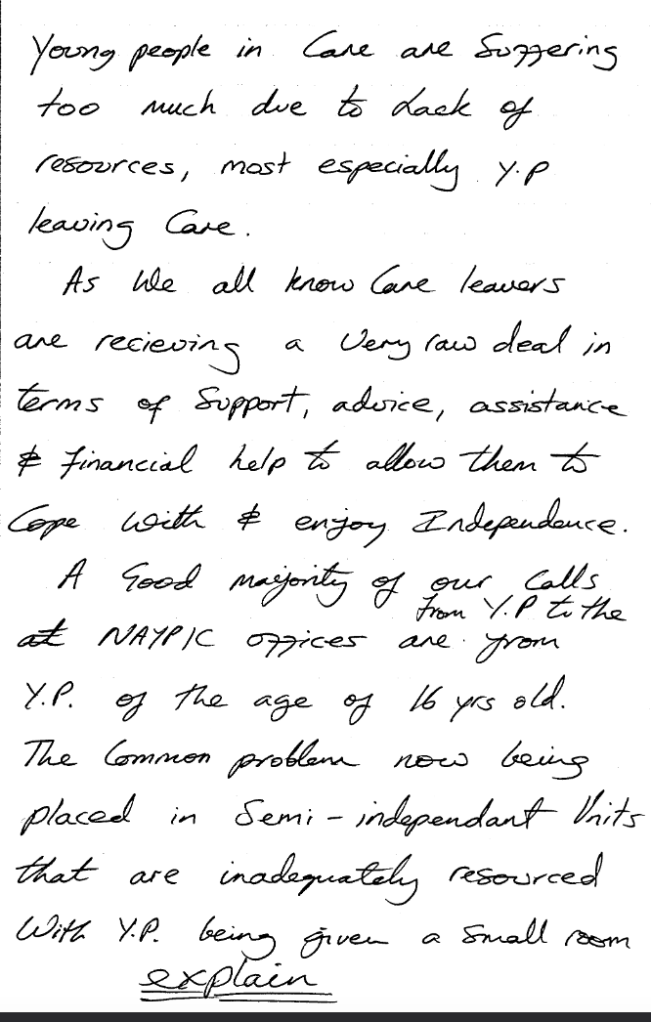 Young people in Care are Suffering
too much due to Lack of
resources, most especially Y.P
leaving Care.
As We all know Care leavers
are recieving a Very raw deal in
terms of Support, advice, assistance
& financial help to allow them to
Cope with & enjoy Independence.
A Good majority of our Calls
from Y.P to the
at NAYPIC offices are from
Y.P. of the age of 16 yrs old.
The Common problem now being
placed in Semi-independant Units
that are inadequately resourced
With Y.P. being given a Small room
explain